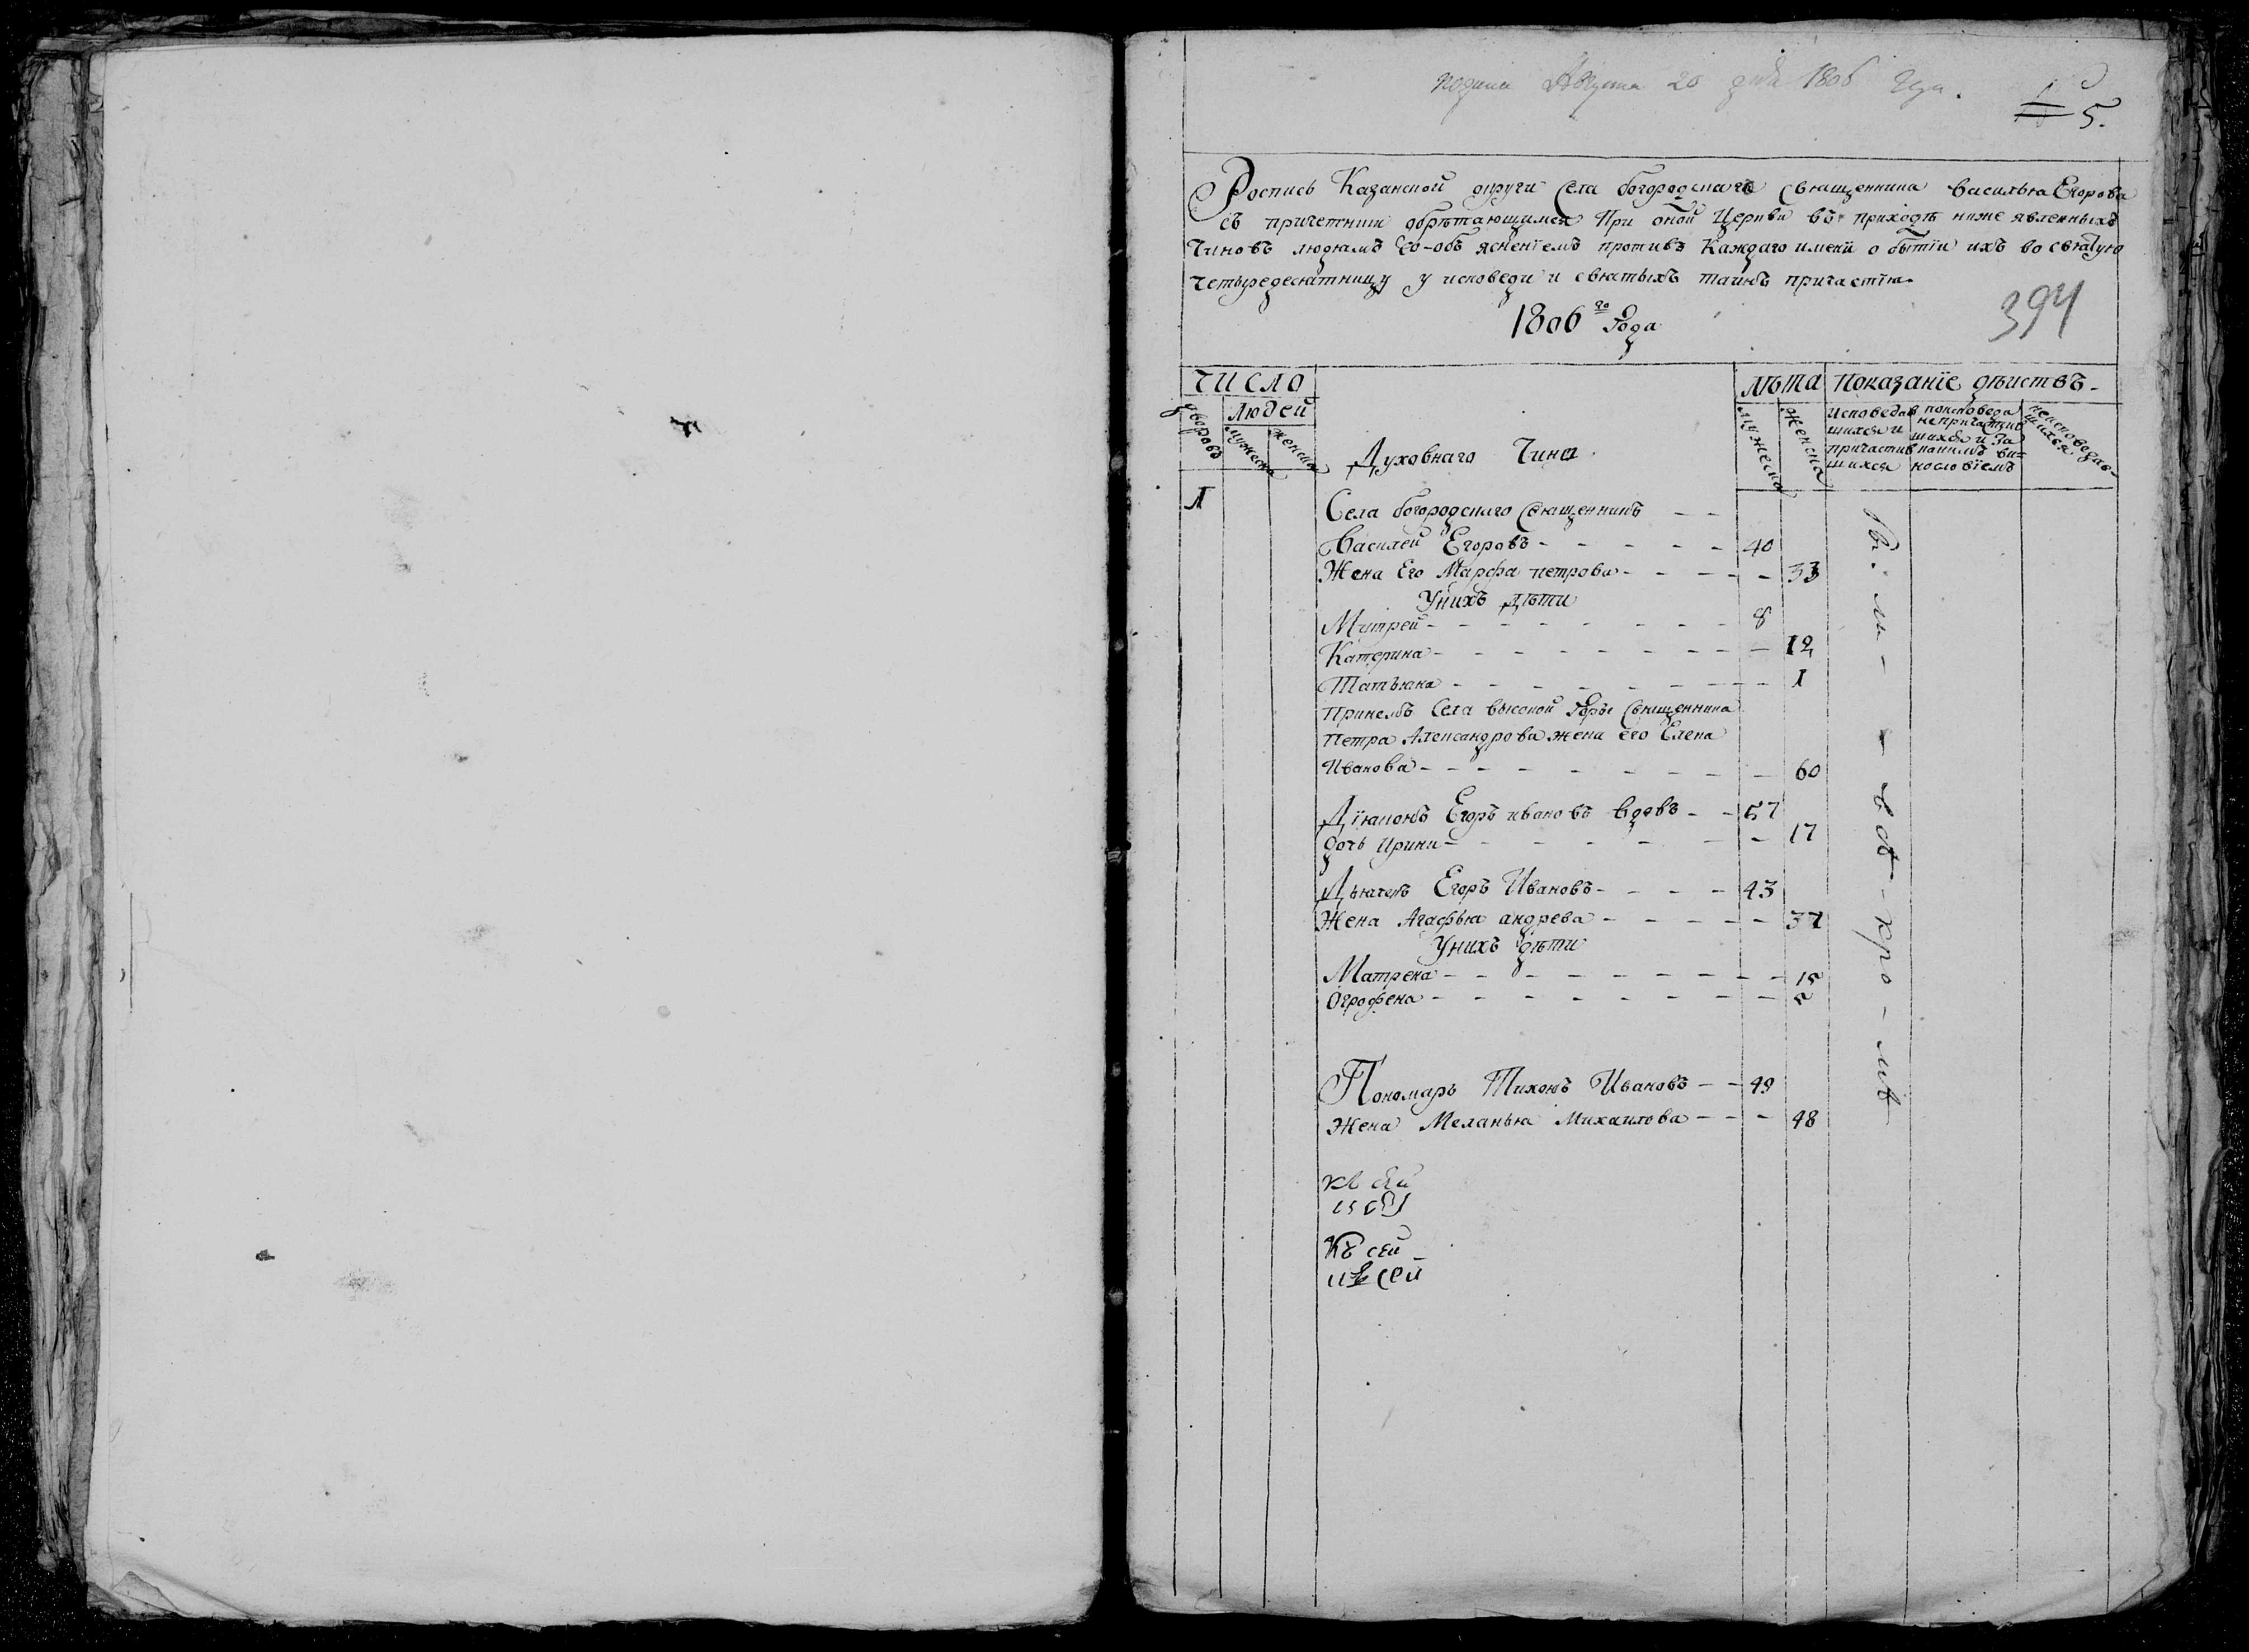 подана Августа 20 дня 1806 года.
5.
Роспись Казанской округи Села богородскаго Священника василья Егорова
съ причетники обрѣтающимся При оной Церкви въ приходѣ ниже явленныхъ
Чиновъ людямъ со-объясненіемъ противъ Каждаго имени о бытіи ихъ во святую
четыредесятницу у исповеди и святыхъ таинъ причастія
1806го Года
394
число
Людей
дворовъ
мужеска
женска
Духовнаго Чина
лѣта
мужеска
женска
Показаніе дѣиствъ
Исповедав
шихся и
причастив
шихся
поисповеда
непричастив
шихся и за
какимъ ви=
кословіемъ
неисповедав-
шихся
1
Села богородскаго Священникъ
Василей Егоровъ - 40
Жена Его Марфа петрова - 33
Унихъ дѣти
Митрей - 8
Катерина - 12
Татьяна - 1
Принемъ Села высокой Горы Священника
Петра Александрова жена его Елена
Иванова - 60
Діяконъ Егоръ ивановъ вдовъ - 57
дочь Ирина - 17
Дьячекъ Егоръ Ивановъ - 43
Жена Агафья андрева - 37
Унихъ дѣти
Матрена - 15
Огрофена - 5
Пономарь Тихонъ Ивановъ - 49
Жена Меланья Михаилова - 48
Къ сей